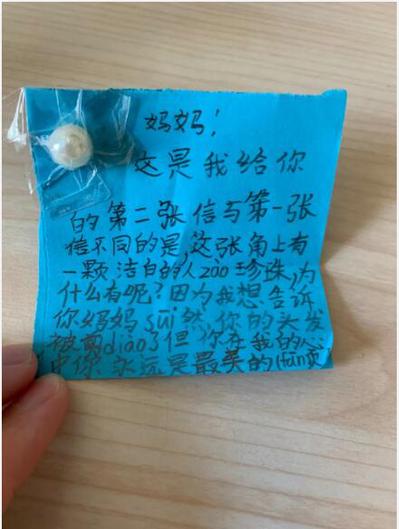 妈妈！
这是我给你
的第二张信与第一张
信不同的是，这张角上有
一颗洁白的人zào珍珠，为
什么有呢？因为我想告诉
你妈妈suī然你的头发
被剪diào了但你在我的心
中你永远是最美的(fān页